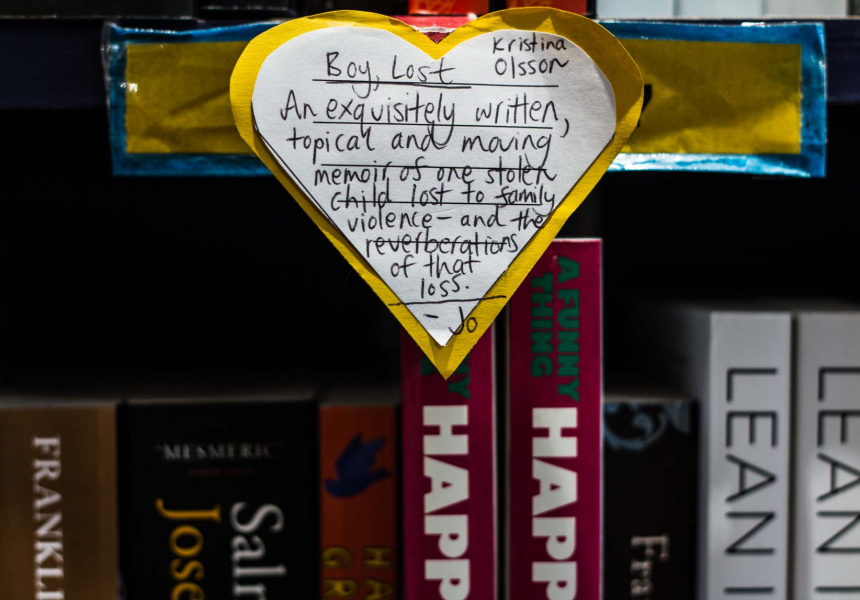 Boy, Lost
Kristina
Olsson
An exquisitely written,
topical and moving
memoir of one stolen
child lost to family
violence - and the
reverberations
of that
loss.
- Jo
FRANKLI
"MESMERIC"
Jose
Saln
HA
GR
HAPP
A FUNNY
THING
HAPP
Fra
LEAN I
LEAN I